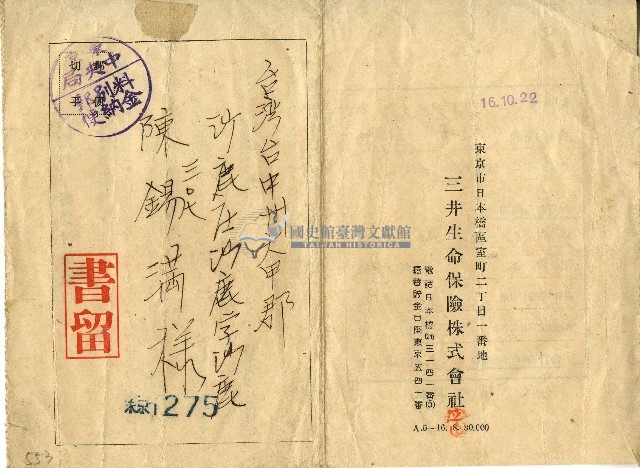 16.10.22
東京市日本橋區室町二丁目一番地
三井生命保險株式會社
電話日本橋(24)三一四一番(5)
振替貯金口座東京五四一番
A.5—16. 8. 30,000
台灣台中州大甲郡
沙鹿庄沙鹿字沙鹿
三〇七
陳錫満様
切手
郵便
東京中央局
料金別納郵便
書留
東京1 275
國史館臺灣文獻館
TAIWAN HISTORICA
553